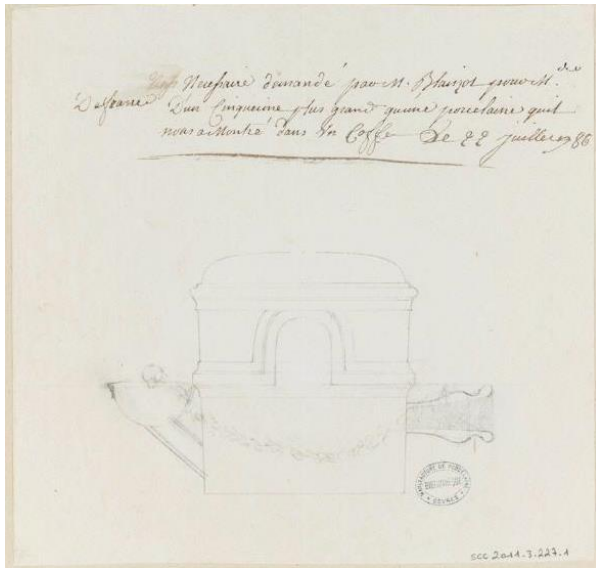 Necessaire demandé par M. Blaizot pour M.de
D'un Cinquieme plus grand qu'une porcelaine qu'il
nous a Montré dans un Coffre Le 22 juillet 1786
MANUFACTURE DE PORCELAINE
SEVRES
SCC 2011.3.227.1